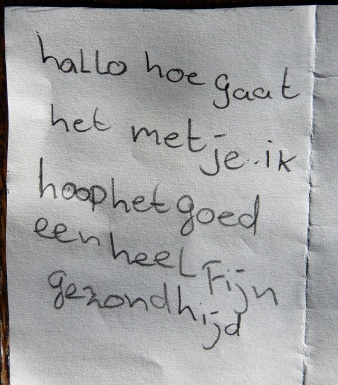 hallo hoe gaat
het met je.. ik
hoop het goed
een heel fijn
gezondhijd